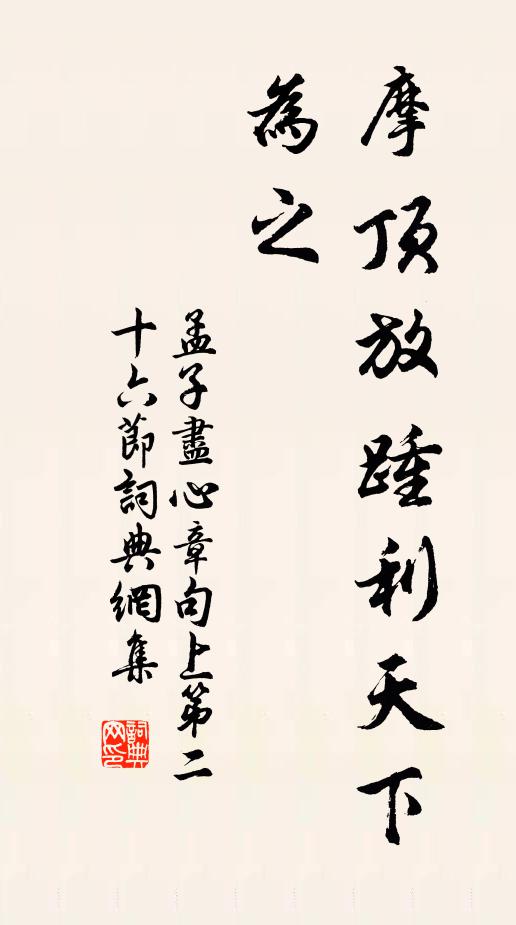 摩頂放踵利天下
為之
孟子盡心章句上第二
十六節詞典網集
詞典
网印